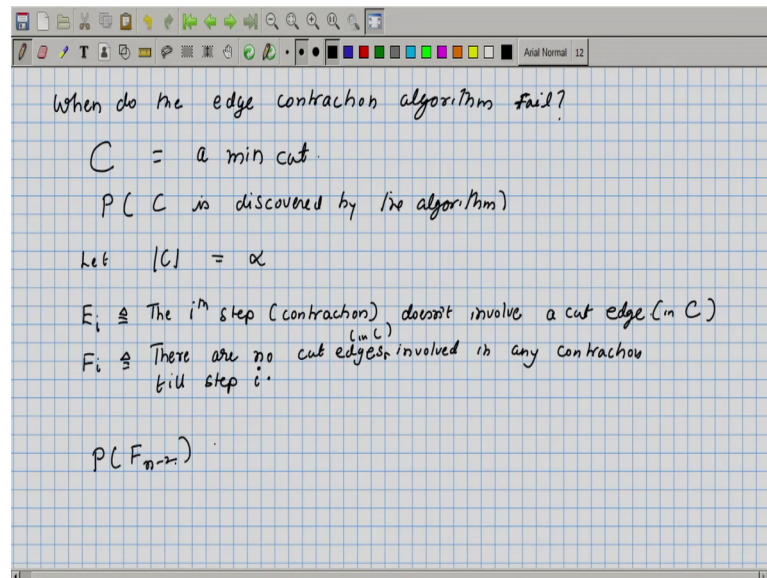 Arial Normal 12
When do the edge contraction algorithm Fail?
C = a min cut.
P( C is discovered by the algorithm)
Let |C| = α
Ei ≜ The ith step (contraction) doesn't involve a cut edge (in C)
(in C)
Fi ≜ There are no cut edges, involved in any contraction
till step i.
P( Fn-2. )